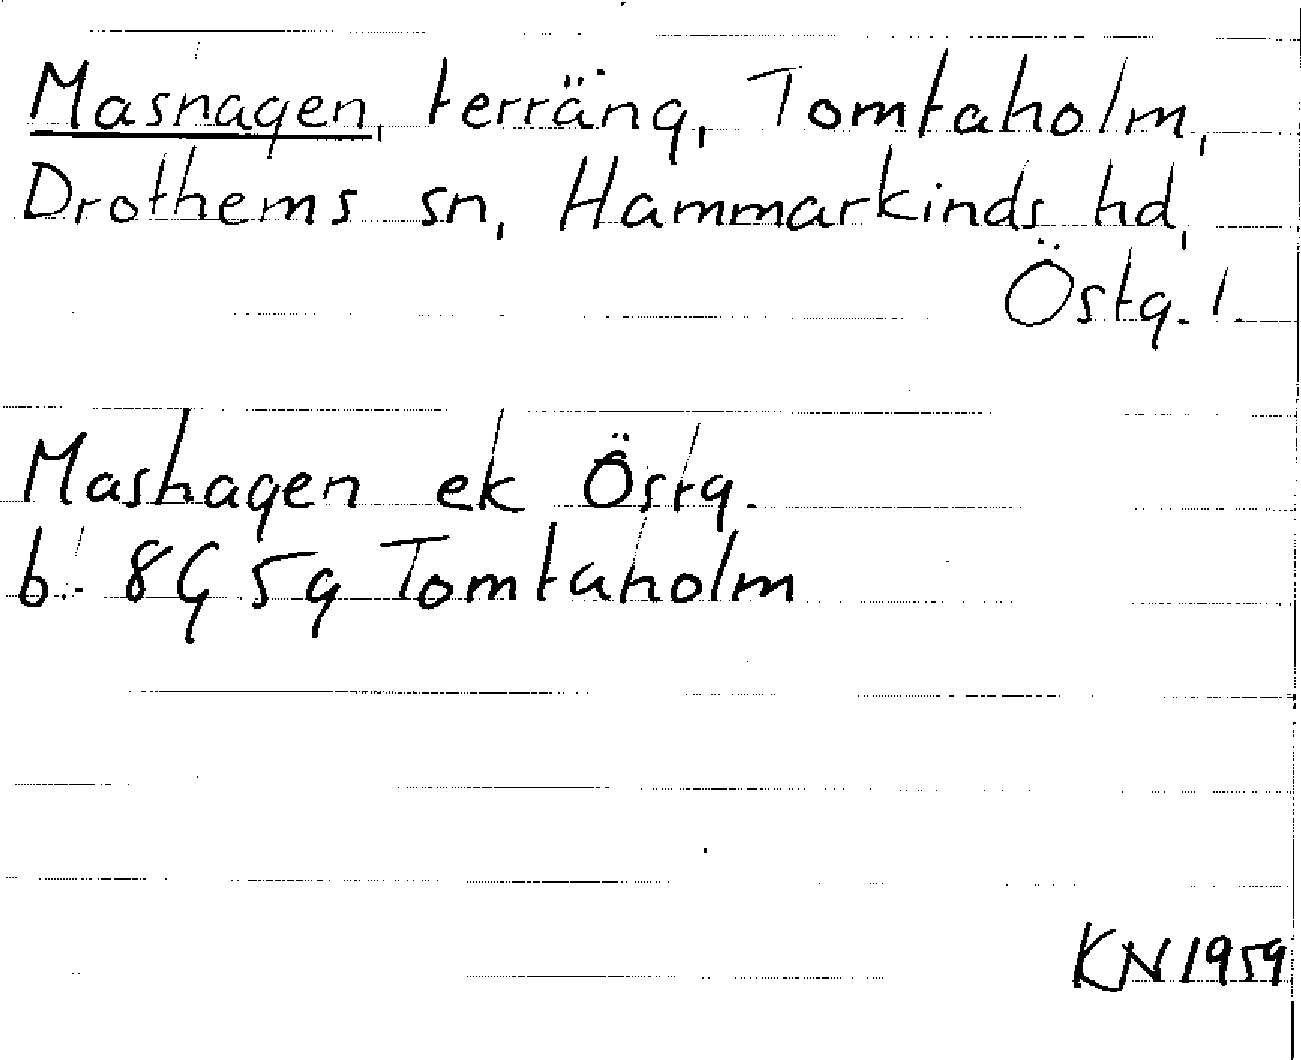 Mashagen, terräng, Tomtaholm,
Drothems sn, Hammarkinds hd,
Östg. l.
Mashagen ek Östg.
bl. 8G 5g Tomtaholm
KN 1959